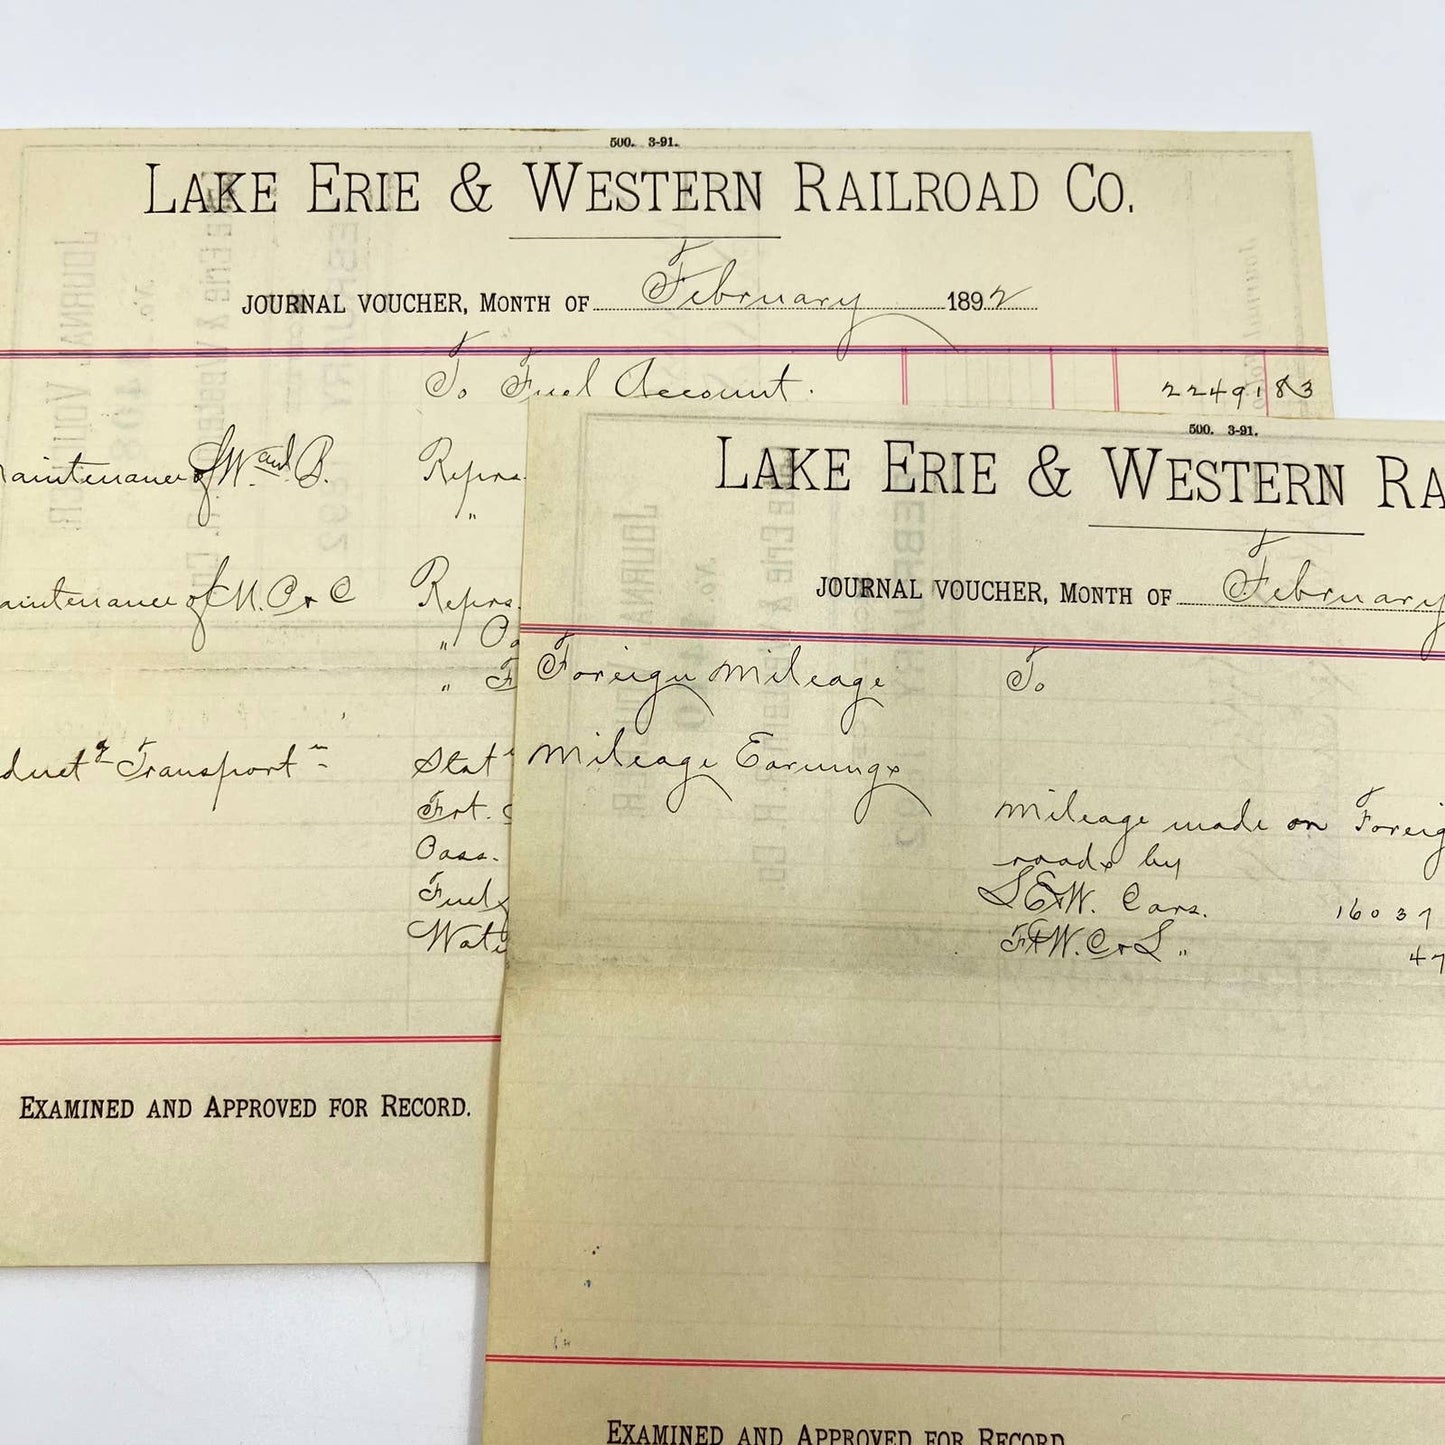 500. 3-91.
LAKE ERIE & WESTERN RAILROAD CO.
JOURNAL VOUCHER, MONTH OF February 1892
To Fuel Account. 2249183
aintenance of W. and B. Reprs.
"
aintenance of M. C & C Reprs.
"
"
duct g Transport n Stat
Frt.
Pass.
Fuel
Wat
EXAMINED AND APPROVED FOR RECORD.
500. 3-91.
LAKE ERIE & WESTERN RA
JOURNAL VOUCHER, MONTH OF February
Foreign Mileage To
Mileage Earnings
Mileage made on Foreig
roads by
L E & W. Cars. 16037
Ft W. C & L " 47
EXAMINED AND APPROVED FOR RECORD